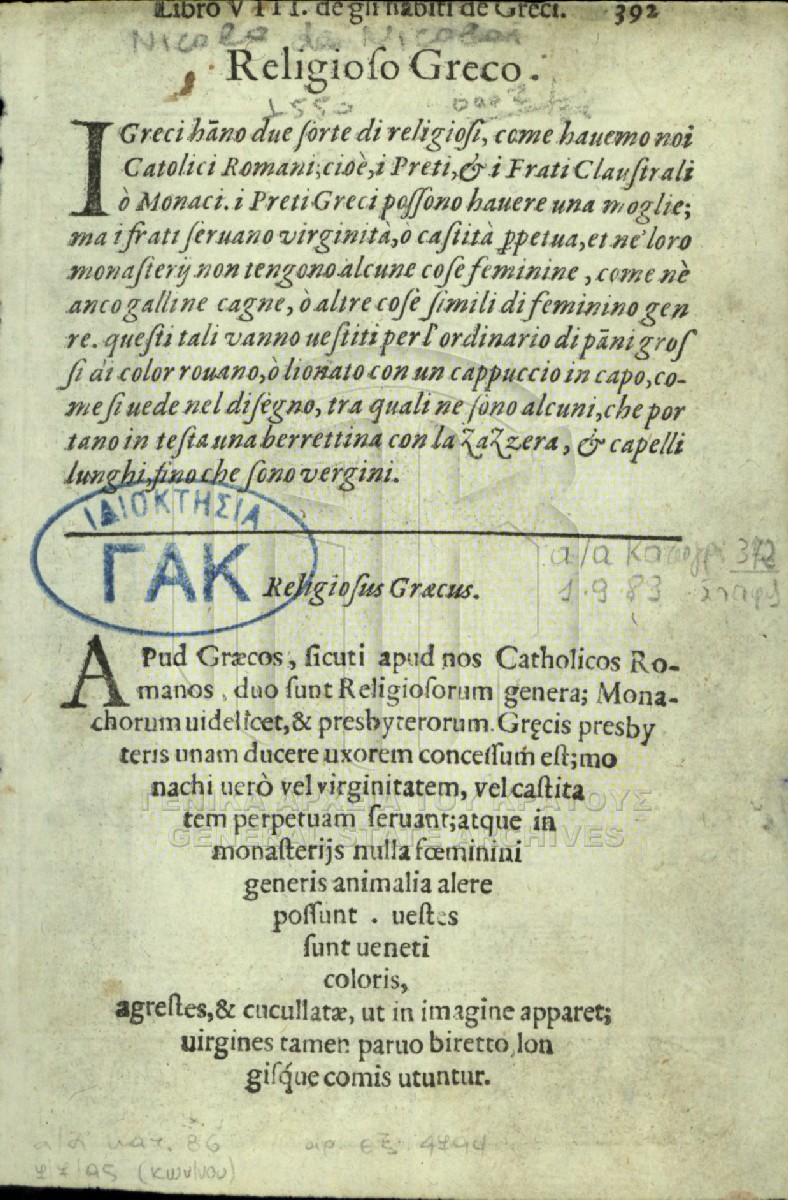 Libro VIII. de gli habiti de Greci. 392
Nicolo de Nicolai
Religioſo Greco.
1550
I Greci hãno due ſorte di religioſi, come hauemo noi
Catolici Romani; cioè, i Preti, & i Frati Clauſtrali
ò Monaci. i Preti Greci poſſono hauere una moglie;
ma i frati ſeruano virginità, ò caſtità ꝑpetua, et ne' loro
monaſterij non tengono alcune coſe feminine, come nè
anco galline cagne, ò altre coſe ſimili di feminino gen
re. queſti tali vanno ueſtiti per l'ordinario di pãni groſ
ſi di color rouano, ò lionato con un cappuccio in capo, co-
me ſi uede nel diſegno, tra quali ne ſono alcuni, che por
tano in teſta una berrettina con la zazzera, & capelli
lunghi, fino che ſono vergini.
ΙΔΙΟΚΤΗΣΙΑ
ΓΑΚ
α/α 372
1.9.83
Religioſus Græcus.
APud Græcos, ſicuti apud nos Catholicos Ro-
manos, duo ſunt Religioſorum genera; Mona-
chorum uidelicet, & presbyterorum. Gręcis presby
teris unam ducere uxorem conceſſum eſt; mo
nachi uerò vel virginitatem, vel caſtita
tem perpetuam ſeruant; atque in
monaſterijs nulla fœminini
generis animalia alere
poſſunt. ueſtes
ſunt ueneti
coloris,
agreſtes, & cucullatæ, ut in imagine apparet;
uirgines tamen paruo biretto, lon
giſq́ue comis utuntur.
ΓΕΝΙΚΑ ΑΡΧΕΙΑ ΤΟΥ ΚΡΑΤΟΥΣ
GENERAL STATE ARCHIVES
α/α κατ. 86